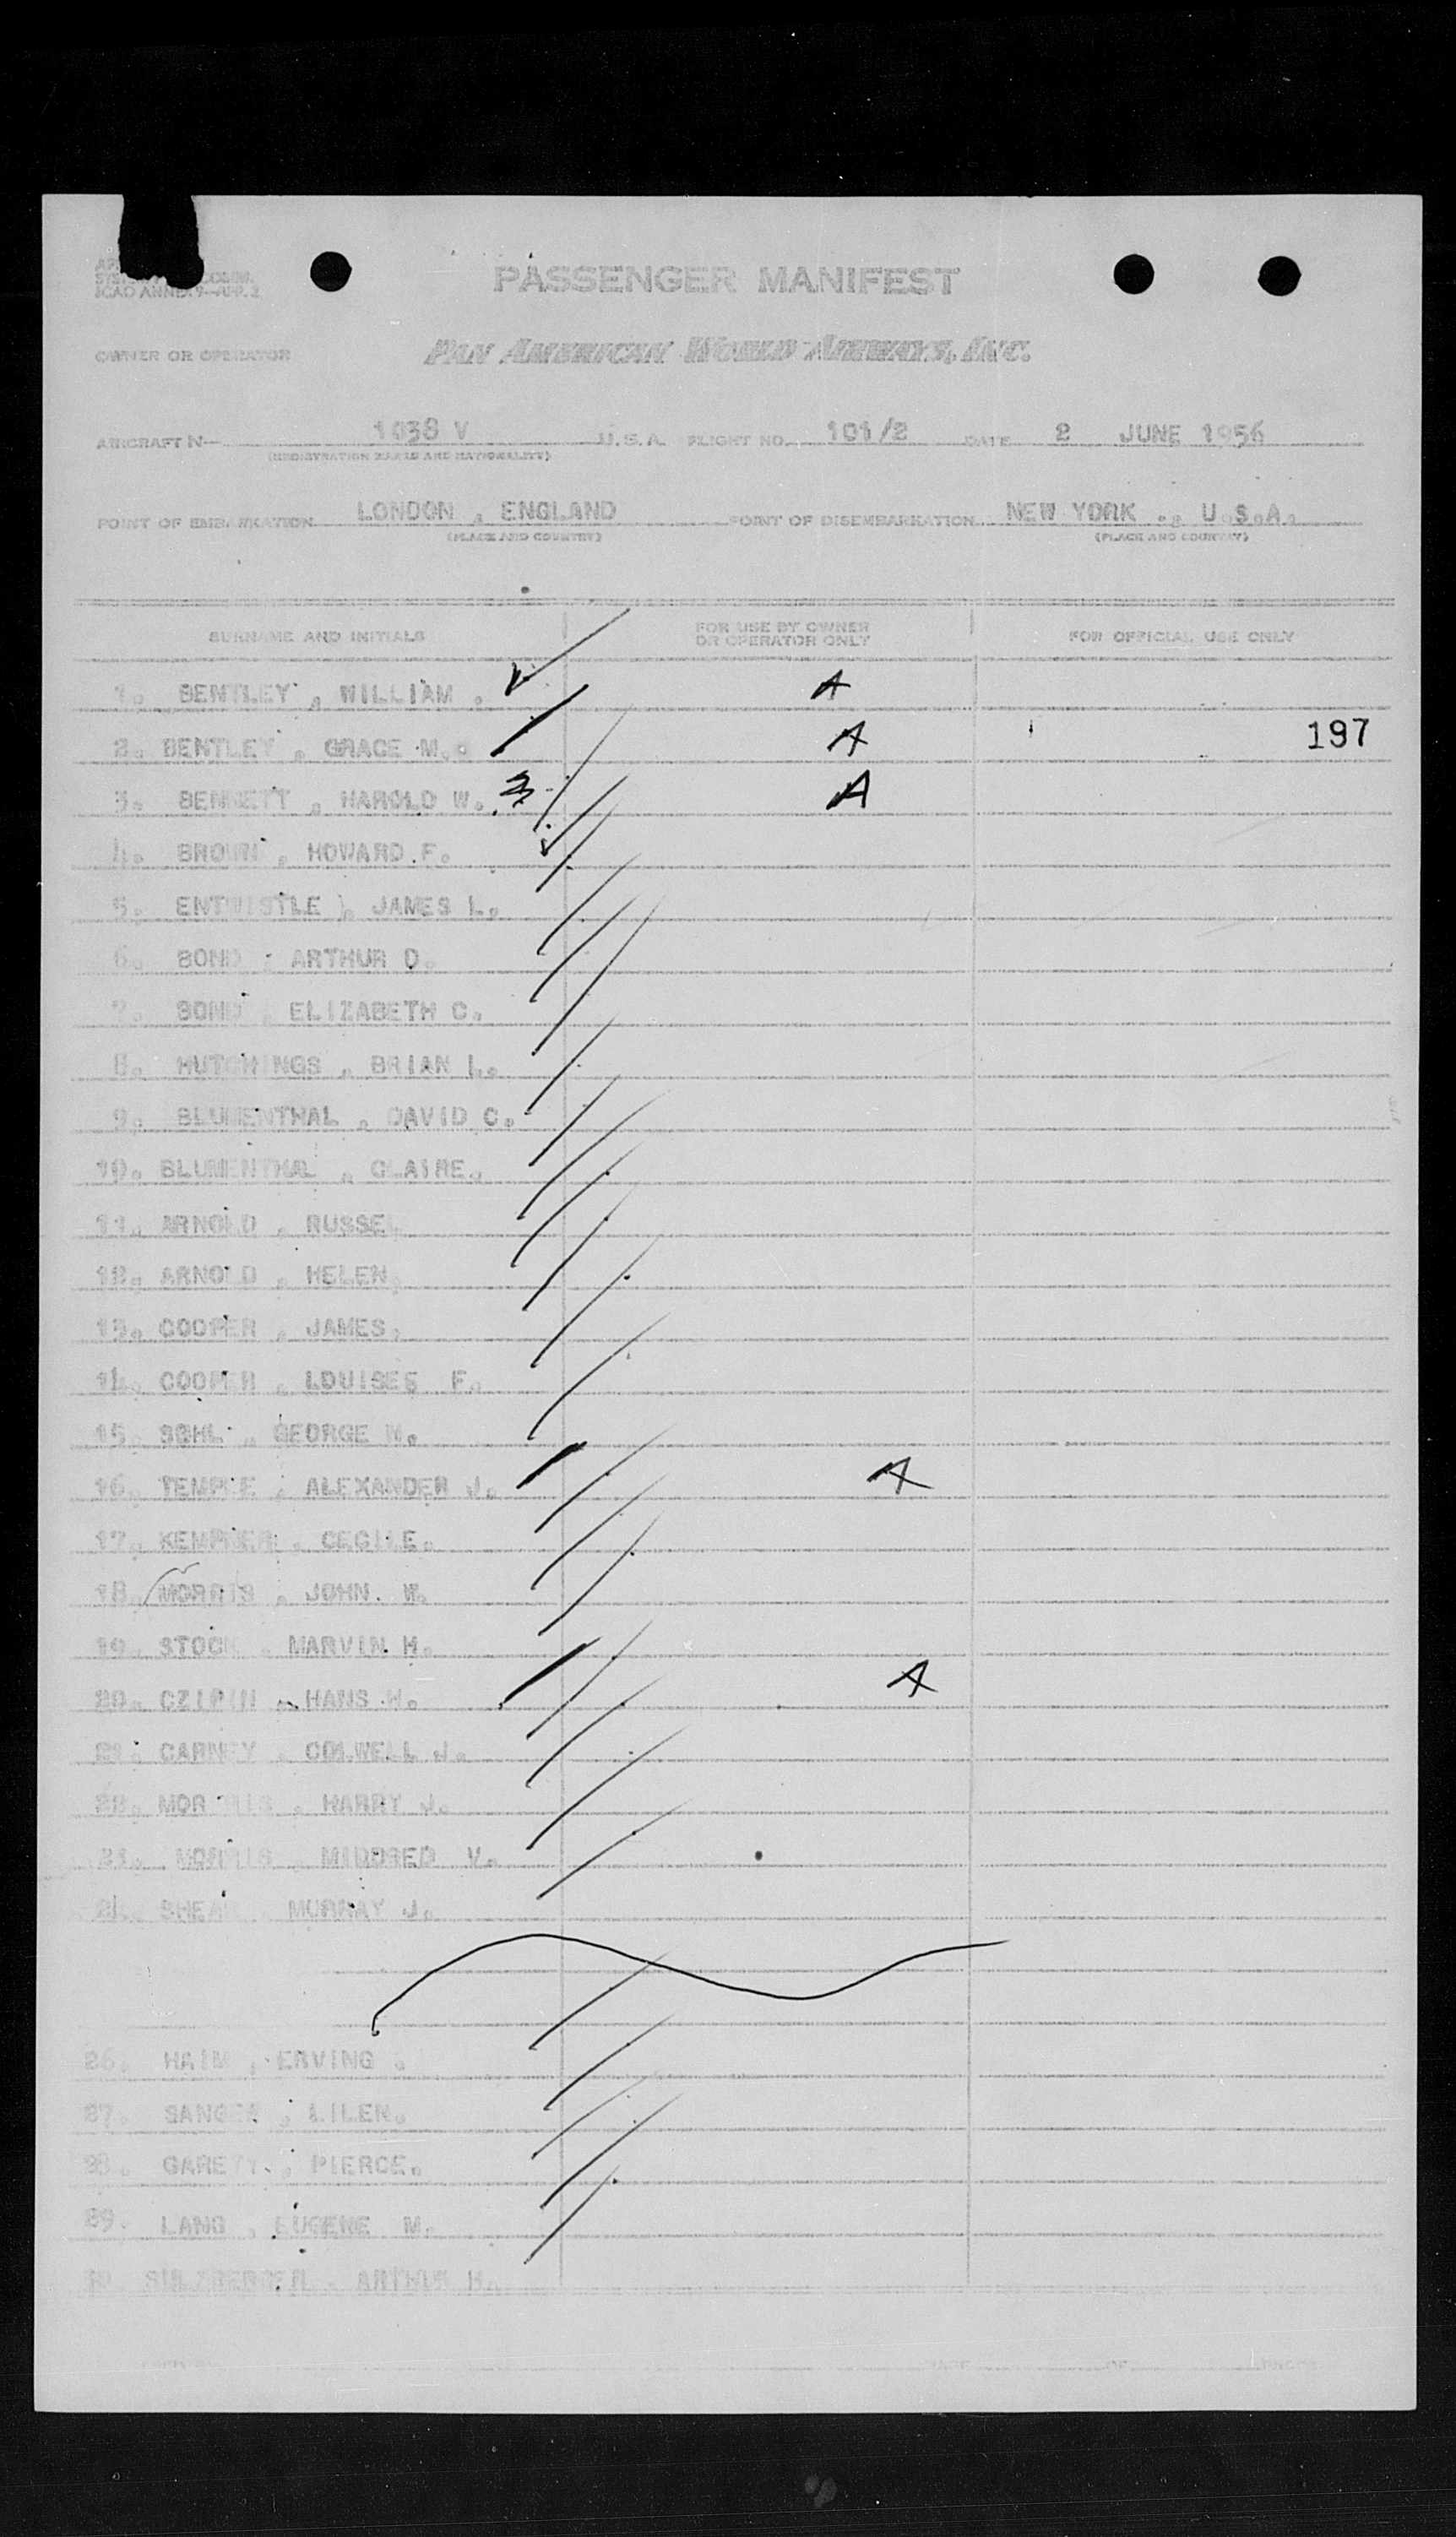 PASSENGER MANIFEST
OWNER OR OPERATOR PAN AMERICAN WORLD AIRWAYS, INC.
AIRCRAFT N- 1038 V U.S.A. FLIGHT NO. 101/2 DATE 2 JUNE 1956
(REGISTRATION MARKS AND NATIONALITY)
POINT OF EMBARKATION LONDON , ENGLAND POINT OF DISEMBARKATION NEW YORK ., U.S.A.
(PLACE AND COUNTRY) (PLACE AND COUNTRY)
SURNAME AND INITIALS FOR USE BY OWNER OR OPERATOR ONLY FOR OFFICIAL USE ONLY
1. BENTLEY , WILLIAM . A
2. BENTLEY , GRACE M. A 197
3. BENNETT , HAROLD W. A
4. BROWN , HOWARD F.
5. ENTWISTLE , JAMES L.
6. BOND , ARTHUR D.
7. BOND , ELIZABETH C.
8. HUTCHINGS , BRIAN L.
9. BLUMENTHAL , DAVID C.
10. BLUMENTHAL , CLAIRE.
11. ARNOLD , RUSSEL
12. ARNOLD , HELEN.
13. COOPER , JAMES.
14. COOPER , LOUISES F.
15. SOHL , GEORGE W.
16. TEMPLE , ALEXANDER J. A
17. , CECILE.
18. MORRIS , JOHN. W.
19. STOCK , MARVIN H.
20. CZIPIN , HANS H. A
21. CARNEY , COLWELL J.
22. MORRIS , HARRY J.
23. MORRIS , MILDSED V.
24. MURRAY J.
26. HAIM , ERVING .
27. SANGER , LILEN.
28. , PIERCE.
29. LANG , EUGENE M.
30. SULZBERGER , ARTHUR H.